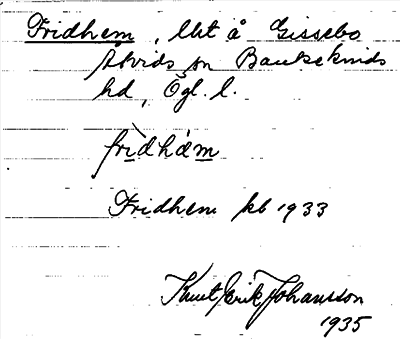 Fridhem, lht å Gissebo
Åtvids sn Bankekinds
hd, Ögl. l.
frìdhä́m
Fridhem kb 1933
Knut Erik Johansson
1935